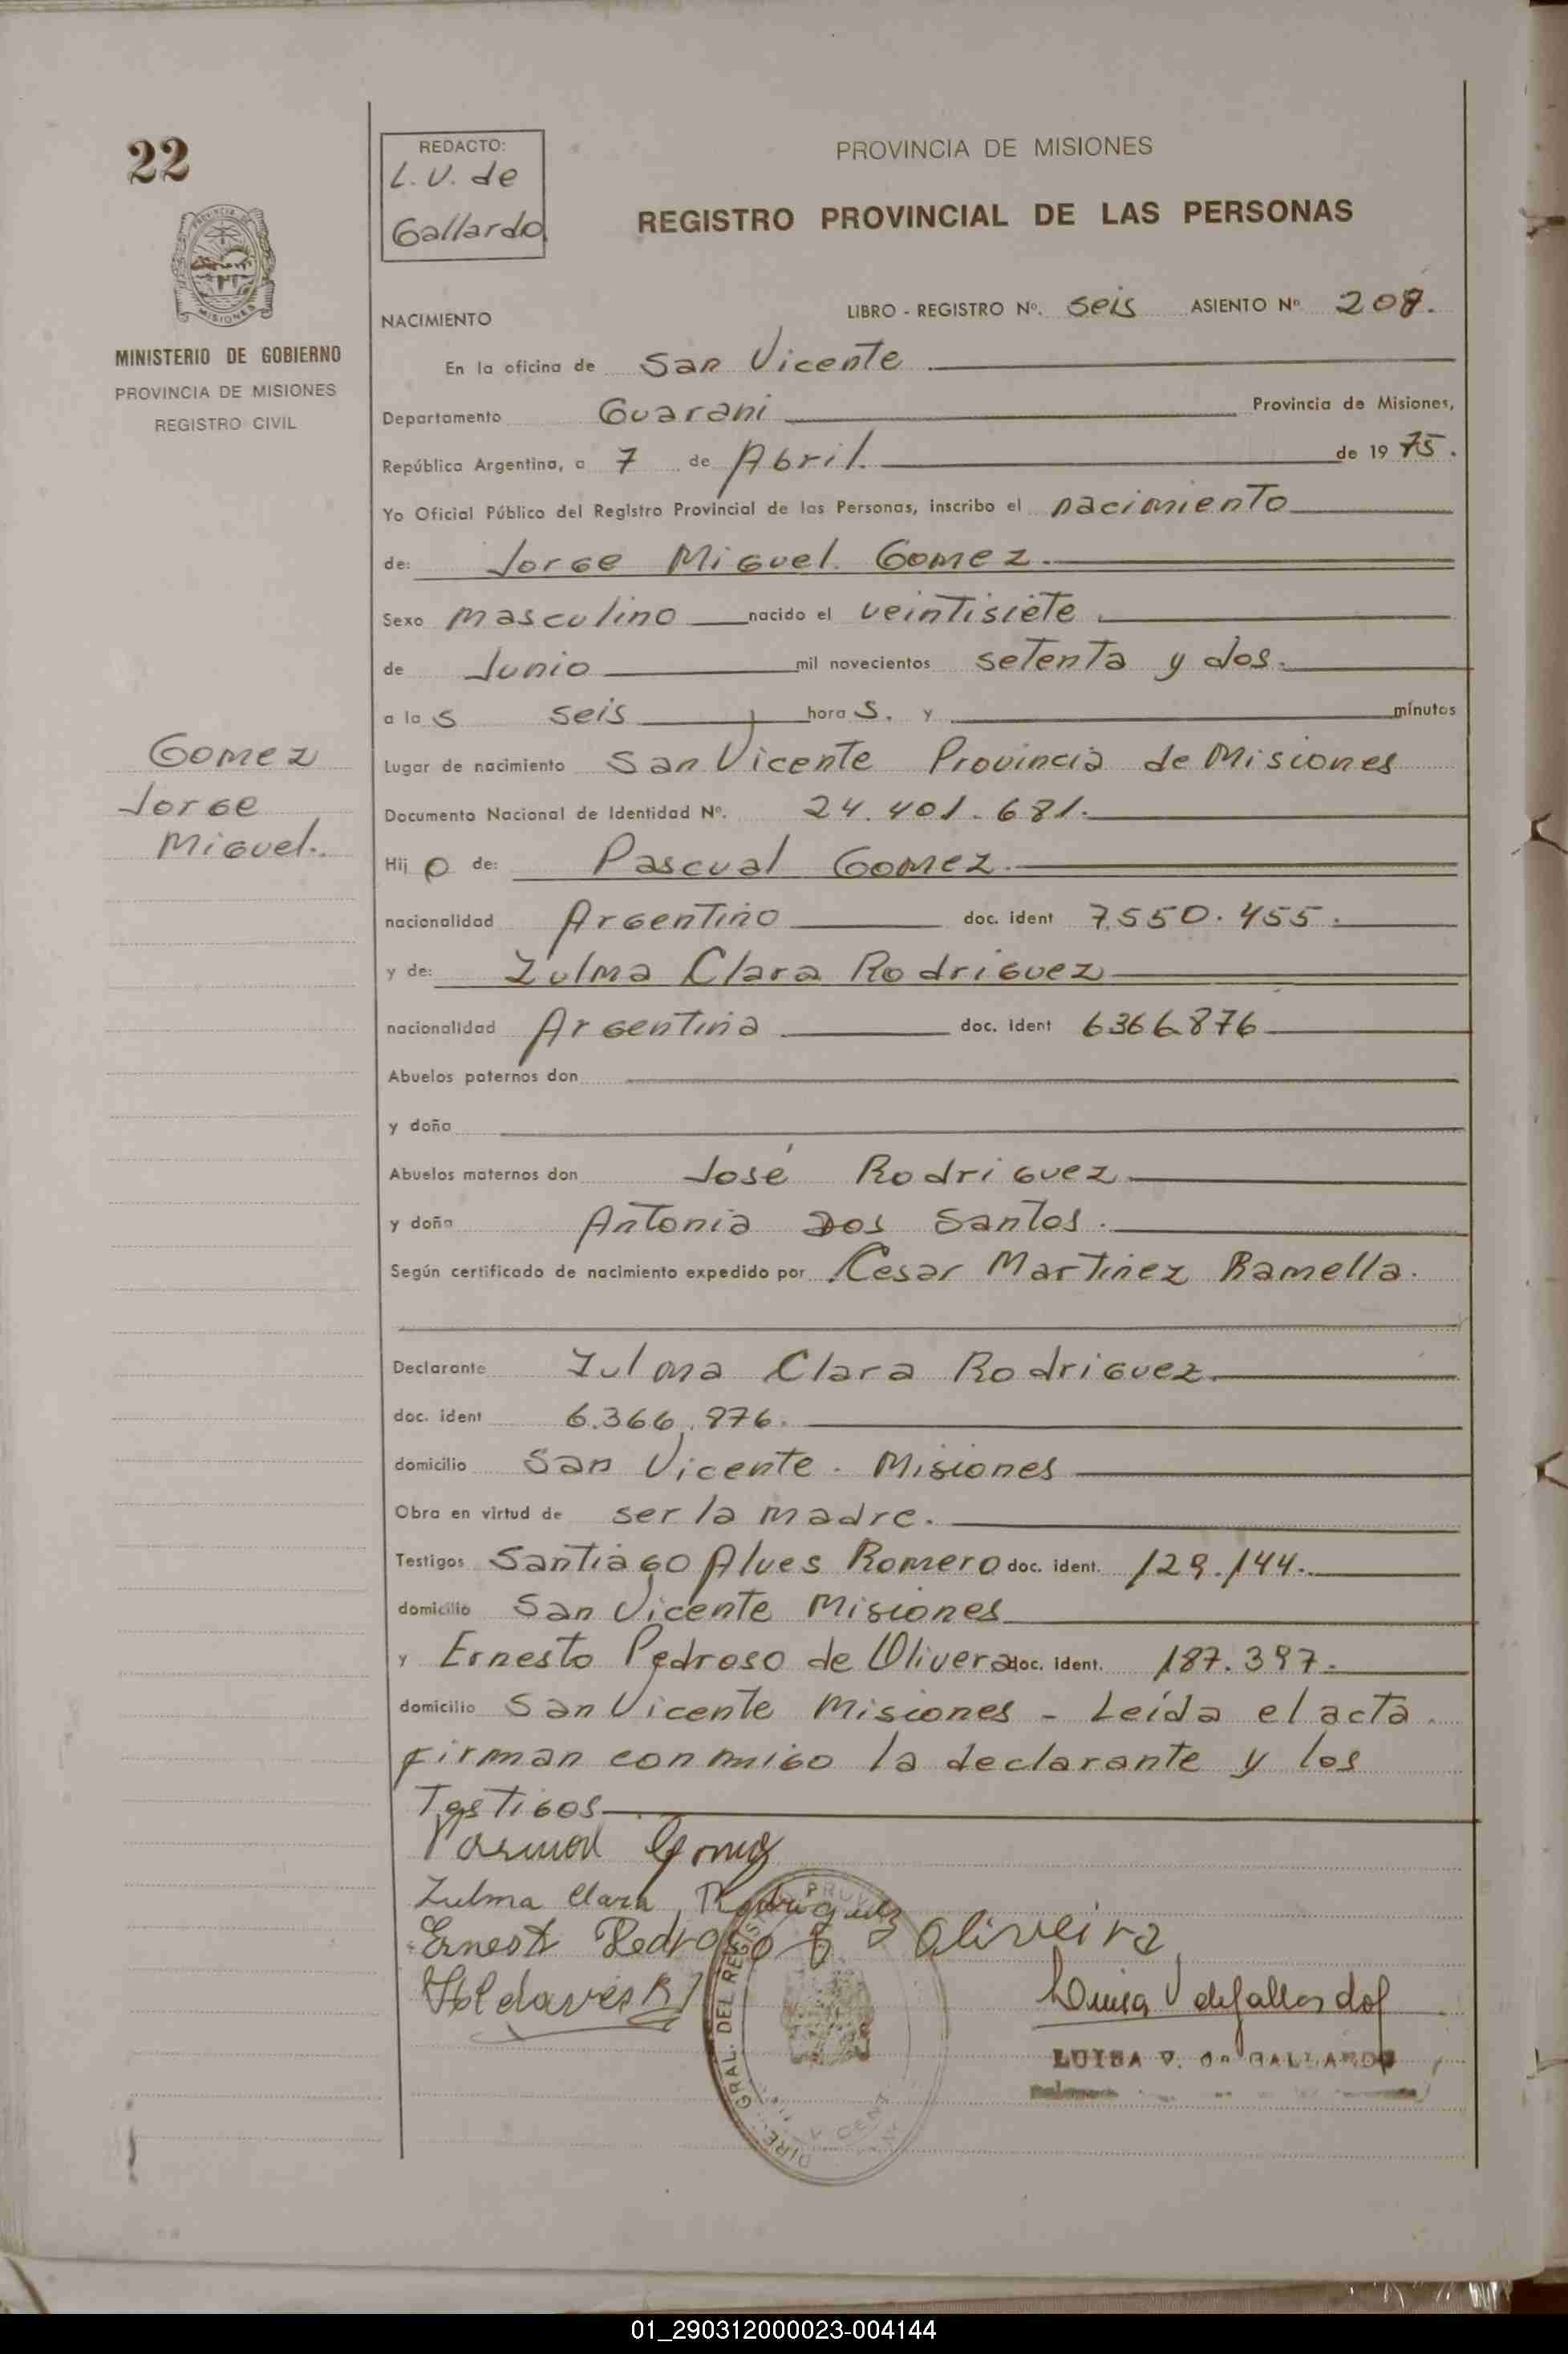 22
REDACTO:
L. V. de
Gallardo
PROVINCIA DE MISIONES
REGISTRO PROVINCIAL DE LAS PERSONAS
MISIONES
MINISTERIO DE GOBIERNO
PROVINCIA DE MISIONES
REGISTRO CIVIL
NACIMIENTO LIBRO - REGISTRO Nº. seis ASIENTO Nº 208.
En la oficina de San Vicente
Departamento Guarani Provincia de Misiones,
República Argentina, a 7 de Abril. de 19 75.
Yo Oficial Público del Registro Provincial de las Personas, inscribo el nacimiento
de: Jorge Miguel. Gomez.
Sexo masculino nacido el veintisiete
de Junio mil novecientos setenta y dos.
a las seis horas. y minutos
Gomez
Jorge
Miguel.
Lugar de nacimiento San Vicente Provincia de Misiones
Documento Nacional de Identidad Nº. 24.401.681.
Hijo de: Pascual Gomez.
nacionalidad Argentino doc. ident 7.550.455.
y de: Zulma Clara Rodriguez
nacionalidad Argentina doc. ident 6366876
Abuelos paternos don
y doña
Abuelos maternos don José Rodriguez
y doña Antonia Dos Santos.
Según certificado de nacimiento expedido por Cesar Martinez Ramella.
Declarante Zulma Clara Rodriguez.
doc. ident 6.366.876.
domicilio San Vicente. Misiones
Obra en virtud de ser la madre.
Testigos Santiago Alves Romero doc. ident. 129.144.
domicilio San Vicente Misiones
y Ernesto Pedroso de Olivera doc. ident. 187.397.
domicilio San Vicente Misiones - Leída el acta
firman conmigo la declarante y los
Testigos
Pascual Gomez
Zulma Clara Rodriguez
Ernesto Pedroso Oliveira
Luisa V de Gallardo
GRAL. DEL REGIS
LUISA V. de GALLARDO
01_290312000023-004144